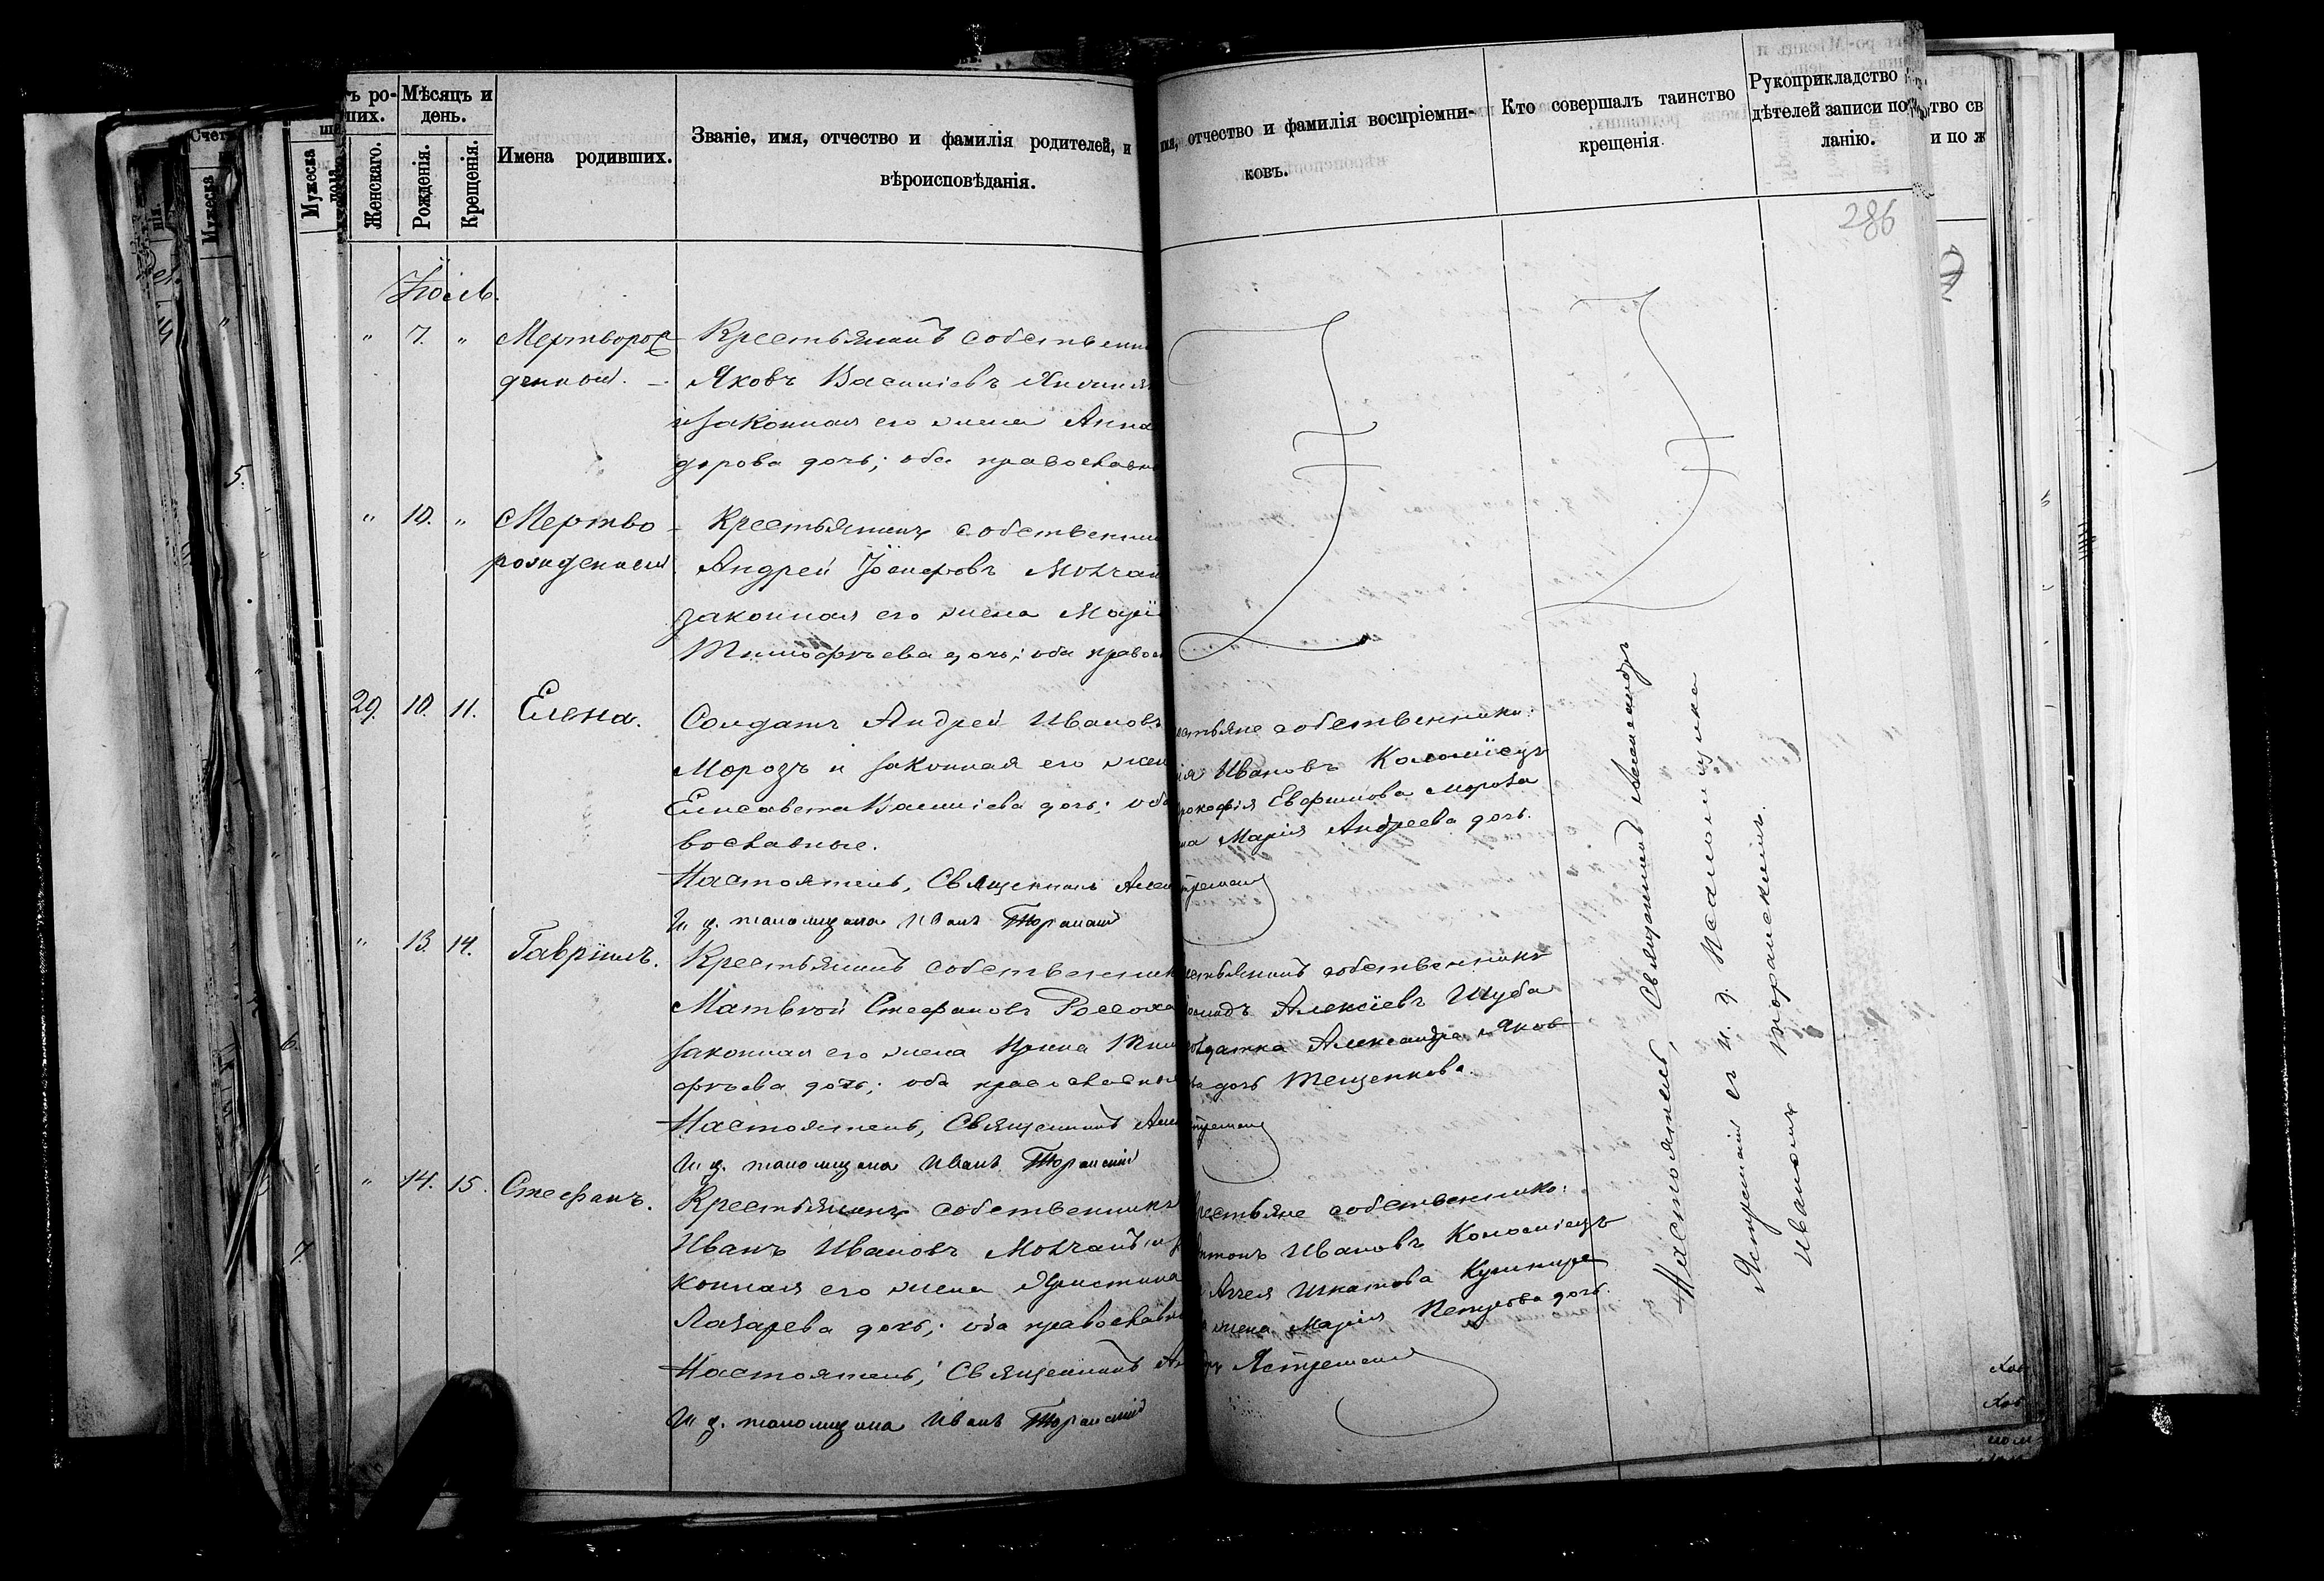 Счетъ
Мужеска
Мужеска пола
ъ ро-
ших.
Женскаго.
Мѣсяцъ и
день.
Рожденія.
Крещенія.
Имена родивших.
Званіе, имя, отчество и фамилія родителей, и
вѣроисповѣданія.
имя, отчество и фамилія воспріемни-
ковъ.
Кто совершалъ таинство
крещенія.
Рукоприкладство
дѣтелей записи по
ланію.
тво св
и по ж
286
5.
6.
7.
Іюль.
" 7. " Мертворож-
денный.
Крестьянинъ собственни
Яковъ Василіевъ
и законная его жена Анна
дорова дочь; оба православн
" 10. " Мертво-
рожденный.
Крестьянинъ собственни
Андрей Іосифовъ Молчан
законная его жена Марі
Тимофѣева дочь; оба правос
29. 10. 11. Елена.
Солдатъ Андрей Ивановъ
Морозъ и законная его жен
Елисавета Василіева дочь; оба
вославные.
Настоятель, Священникъ Алек
И. д. псаломщика Иванъ Торанскій
естьяне собственники:
Ивановъ Коломіецъ
Прокофія Евфимова Мороза
на Марія Андреева дочь.
Ястремскій
" 13. 14. Гавріилъ.
Крестьянинъ собственник
Матвѣй Стефановъ Россоха
законная его жена Ирина Тим
фѣева дочь; оба православны
Настоятель, Священникъ Алек
И. д. псаломщика Иванъ Торанскій
естьянинъ собственникъ
Алексіевъ Шуба
солдатка Александра Яков
ва дочь Тещенкова.
" 14. 15. Стефанъ.
Крестьянинъ собственникъ
Иванъ Ивановъ Молчанъ и за
конная его жена Христина
Лазарева дочь; оба православн
Настоятель, Священникъ Ал
И. д. псаломщика Иванъ Торанскій
рестьяне собственники:
Антонъ Ивановъ Коломіецъ
Игнатова Кушнира
жена Марія Петрова дочь.
Ястремскій
Настоятель, Священникъ Александръ
Ястремскій съ и. д. Псаломщика
Иваномъ Торанскимъ.